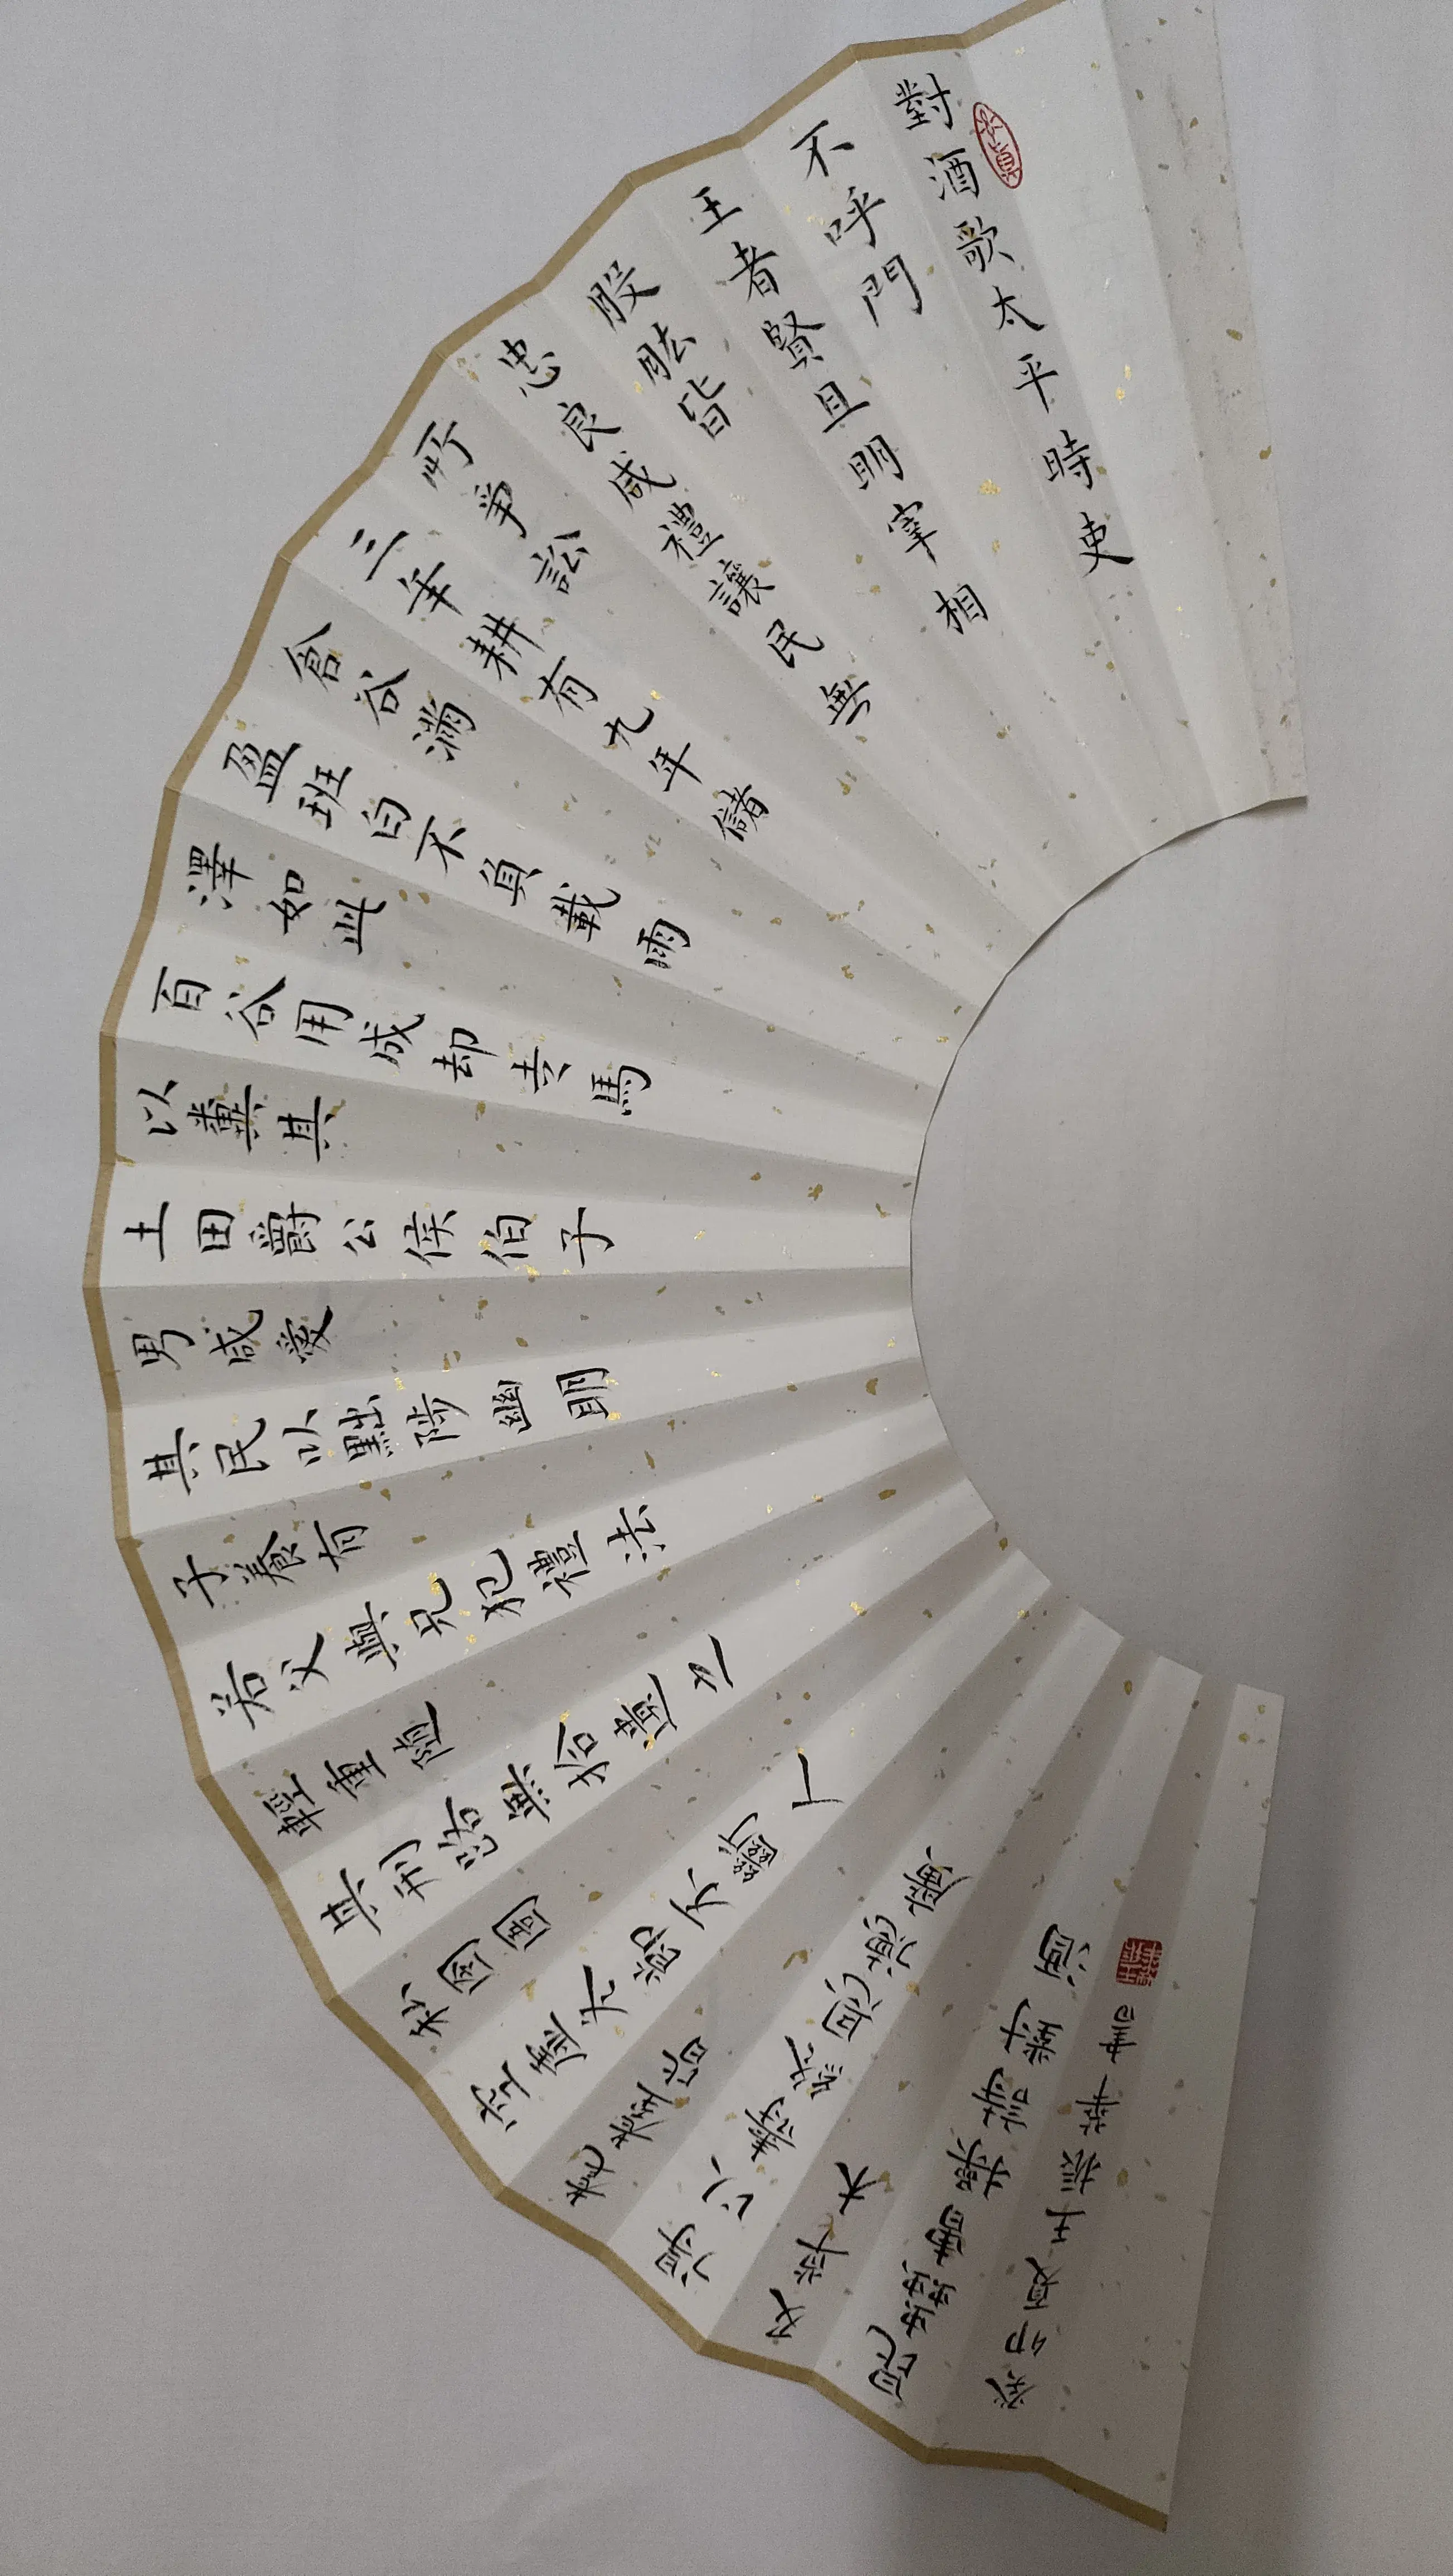 對酒歌太平時吏
不呼門
王者賢且明宰相
股肱皆
忠良咸禮讓民無
所爭訟
三年耕有九年儲
倉谷滿
盈班白不負載雨
澤如此
百谷用成却走馬
以糞其
土田爵公侯伯子
男咸愛
其民以黜陟幽明
子養有
若父與兄犯禮法
輕重隨
其刑路無拾遺之
私囹圄
空虛冬節不斷人
耄耋皆
得以壽終恩澤廣
及草木
昆蟲曹操詩對酒
癸卯夏王振華書